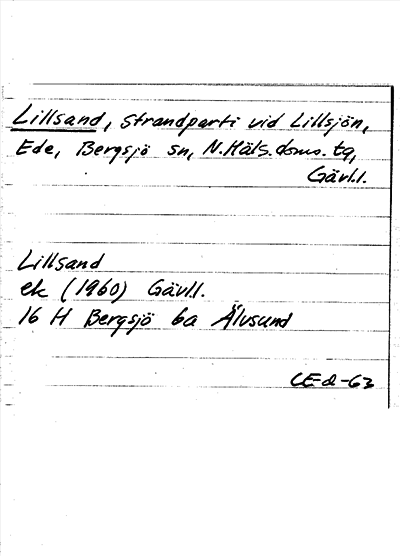 Lillsand, strandparti vid Lillsjön,
Ede, Bergsjö sn, N.Häls.doms.tg,
Gävl.l.
Lillsand
ek (1960) Gävl.l.
16 H Bergsjö 6a Älvsund
CE-d-63